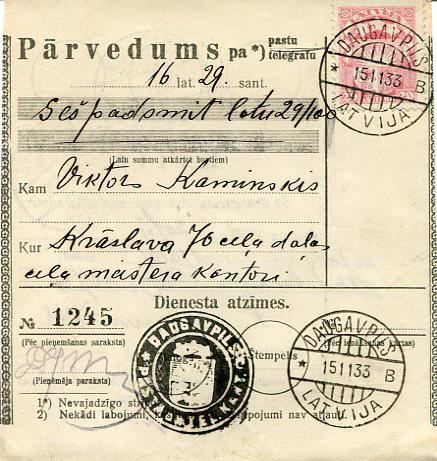 Pārvedums pa*) pastu
telegrafu
16 lat. 29. sant.
Sešpadsmit latu 29/100
(Latu summu atkārtot burtiem)
Kam Viktors Kaminskis
Kur Krāslava 76 ceļa daļas
ceļa meistera kantori.
Dienesta atzīmes.
№ 1245
(Pēc pieņemšanas saraksta)
Štempelis
(Pēc ienākšanas kārtas)
(Pieņēmēja paraksts)
1*) Nevajadzīgo
2) Nekādi labojumi, nav atļauti.
DAUGAVPILS
* 151133 B
LATVIJA
DAUGAVPILS
* 151133 B
LATVIJA
DAUGAVPILS